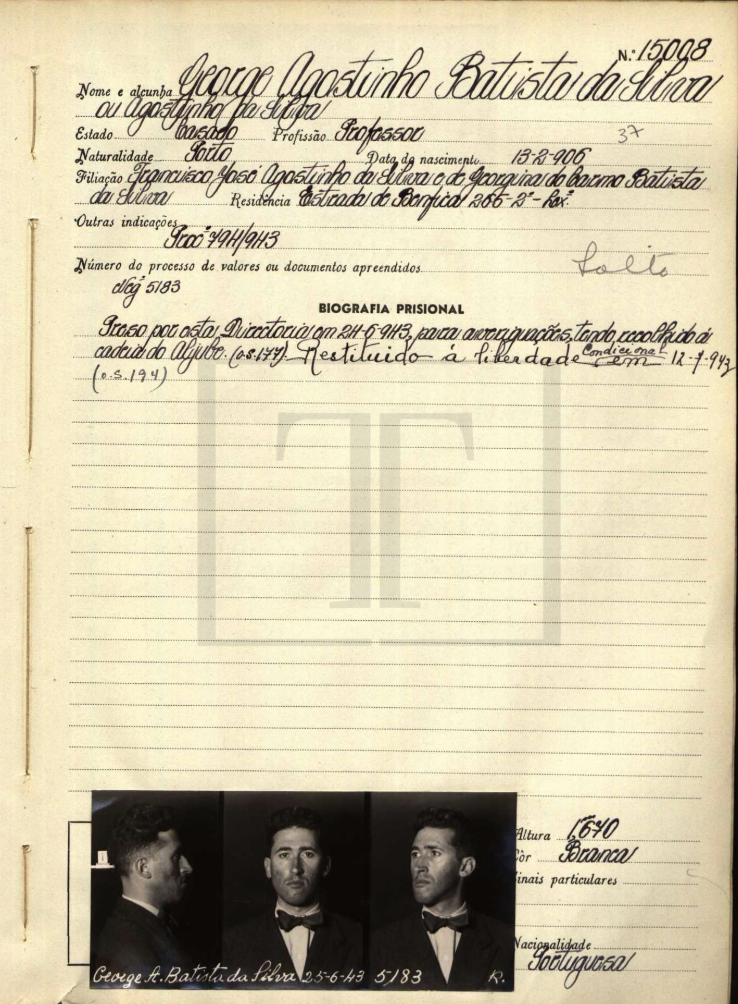 N.º 15008
Nome e alcunha George Agostinho Batista da Silva
ou Agostinho da Silva
Estado Casado Profissão Professor
37
Naturalidade Porto Data do nascimento 13-2-906
Filiação Francisco José Agostinho da Silva e de Georgina do Carmo Batista
da Silva Residência Estrada de Benfica 266-2º-Lxª.
Outras indicações
Procº 794/943
Solto
Número do processo de valores ou documentos apreendidos
Negº 5183
BIOGRAFIA PRISIONAL
Preso por esta Directoria em 24-6-943, para averiguações, tendo recolhido á
cadeia do Aljube. (o.s.177). Restituido á liberdade Condicional em 12-7-943
(o.s.194)
TT
Altura 1,670
Côr Branca
Sinais particulares
Nacionalidade
Portuguesa
George A. Batista da Silva 25-6-43 5183 R.